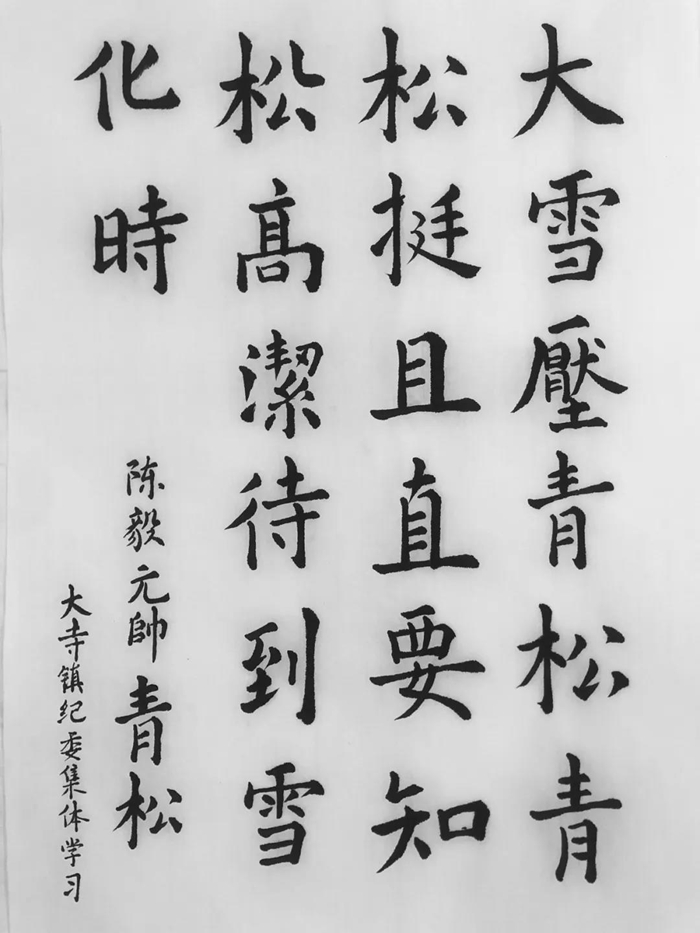 大雪壓青松青
松挺且直要知
松高潔待到雪
化時
陈毅元帥青松
大寺镇纪委集体学习